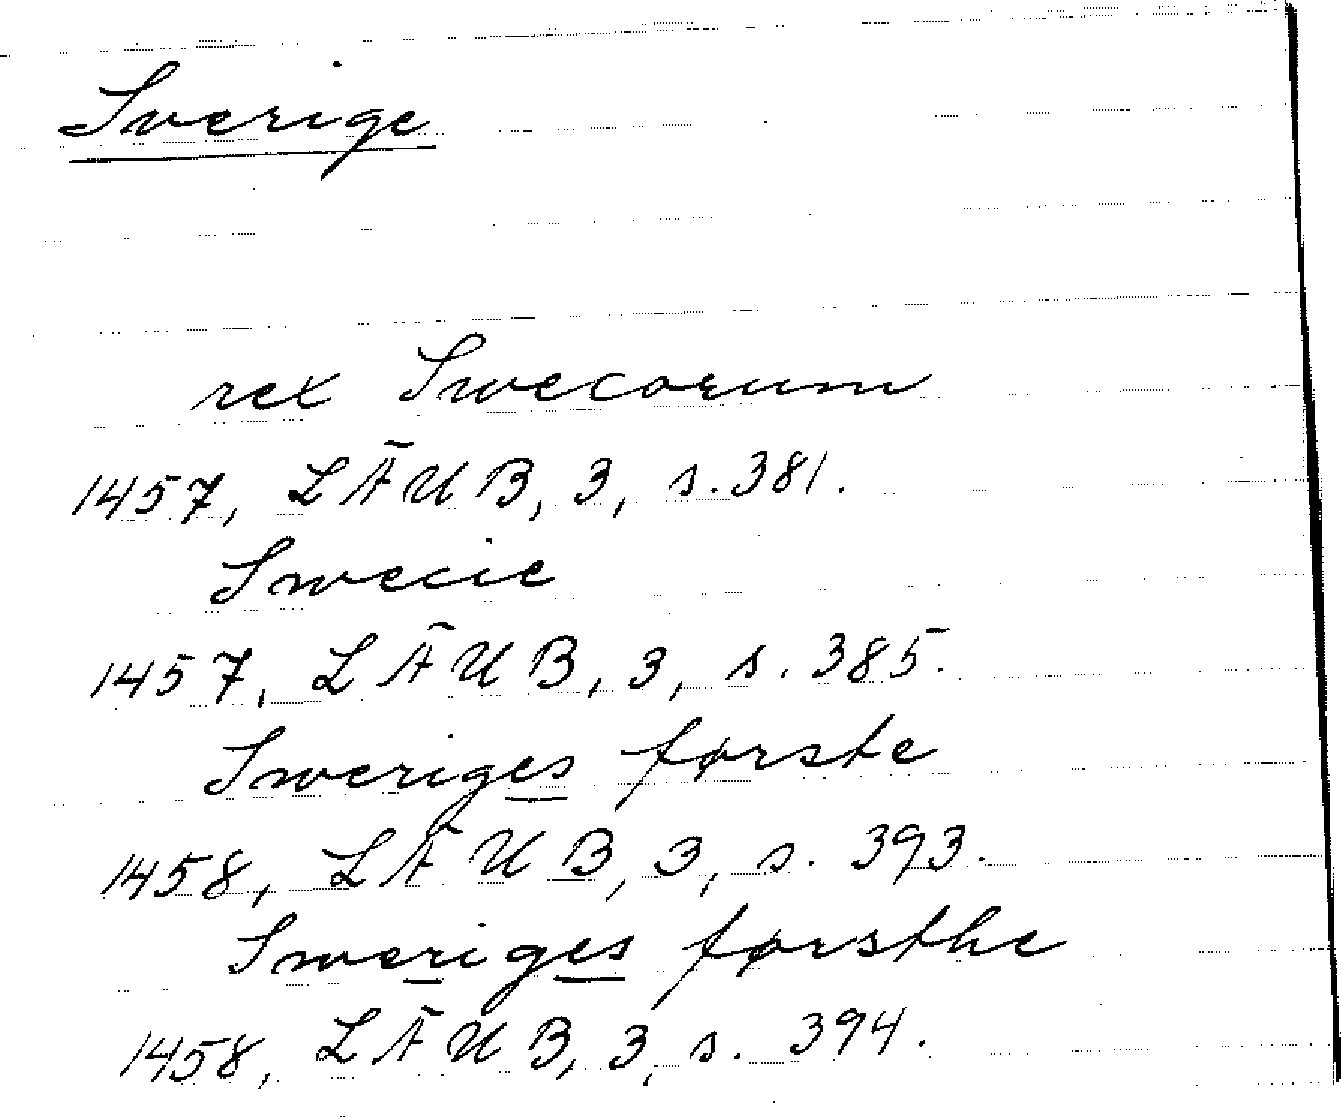 Sverige
rex Swecorum
1457, LÄUB, 3, s. 381.
Swecie
1457, LÄUB, 3, s. 385.
Sweriges første
1458, LÄUB, 3, s. 393.
Sweriges førsthe
1458, LÄUB, 3, s. 394.